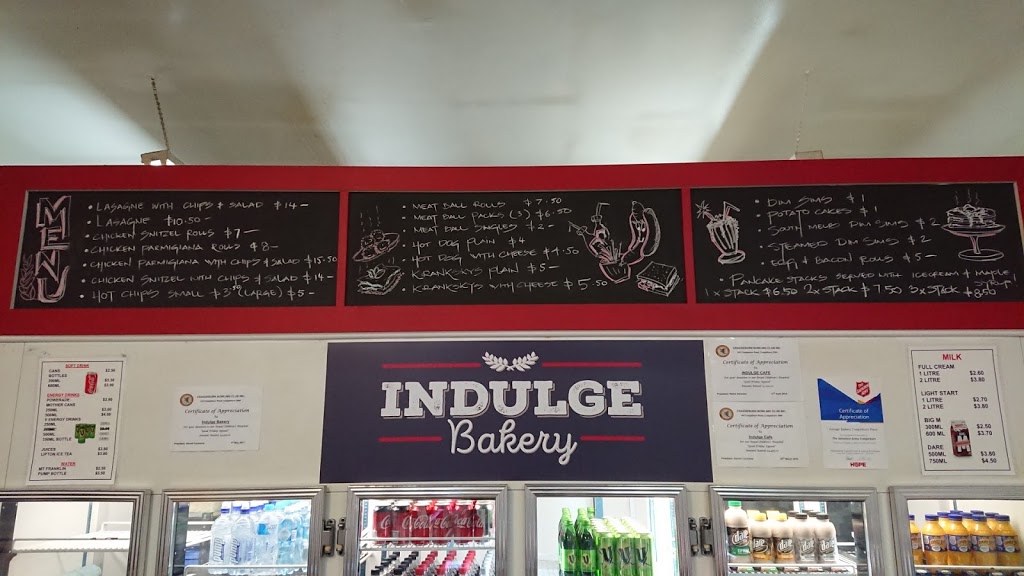 MENU
• LASAGNE WITH CHIPS & SALAD $14 –
• LASAGNE $10.50 –
• CHICKEN SNITZEL ROLLS $7 –
• CHICKEN PARMIGIANA ROLLS $8 –
• CHICKEN PARMIGIANA WITH CHIPS & SALAD $15.50
• CHICKEN SNITZEL WITH CHIPS & SALAD $14 –
• HOT CHIPS SMALL $3.50 (LARGE) $5 –
• MEAT BALL ROLLS $7.50
• MEAT BALL PACKS (3) $6.50
• MEAT BALL SINGLES $2 –
• HOT DOG PLAIN $4
• HOT DOG WITH CHEESE $4.50
• KRANSKYS PLAIN $5 –
• KRANSKYS WITH CHEESE $5.50
• DIM SIMS $1
• POTATO CAKES $1
• SOUTH MELB DIM SIMS $2
• STEAMED DIM SIMS $2
• EGG & BACON ROLLS $5 –
• PANCAKE STACKS SERVED WITH ICECREAM & MAPLE SYRUP
1 x STACK $6.50 2 x STACK $7.50 3 x STACK $8.50
SOFT DRINK
CANS $2.50
BOTTLES
ENERGY DRINKS
POWERADE
MOTHER CANS
V ENERGY DRINKS
JUICES
LIPTON ICE TEA
WATER
MT FRANKLIN
PUMP BOTTLE
Certificate of Appreciation
Indulge Bakery
INDULGE
Bakery
Certificate of Appreciation
INDULGE CAFE
Certificate of Appreciation
Indulge Cafe
Certificate of
Appreciation
HOPE
MILK
FULL CREAM
1 LITRE $2.60
2 LITRE $3.80
LIGHT START
1 LITRE $2.70
2 LITRE $3.80
BIG M
300ML $2.50
600 ML $3.70
DARE
500ML $3.80
750ML $4.50
Coca-Cola
V
dare